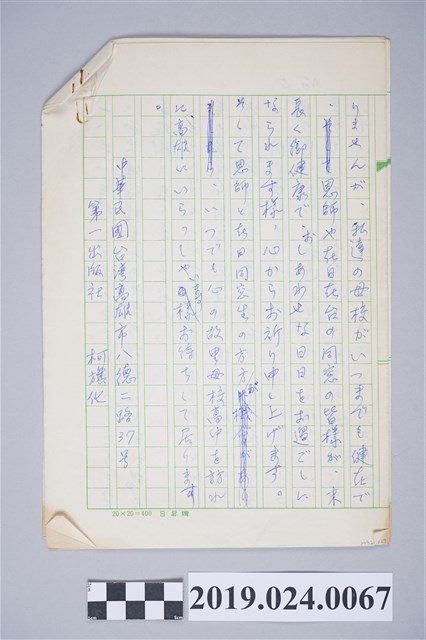 りませんが、私達の母校がいつまでも健在で
恩師や在日在台の同窓の皆様が、末
長く御健康で、おしあわせな日日をお過ごしに
なられます様、心からお祈り申し上げます。
そして恩師と在日同窓生の方方が
、いつでも心の故里母校高中を訪れ
に高雄にいらっしゃる様お待ちして居ります
。
中華民國台湾高雄市八德二路37号
第一出版社 柯旗化
20×20=400
2019.024.0067